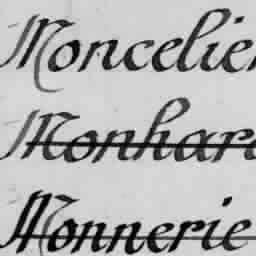 Moncelier
Monhard
Monnerie